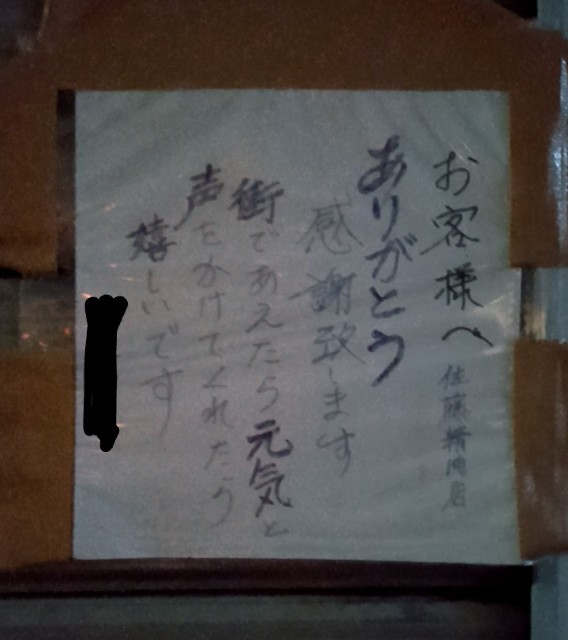 お客様へ 佐藤精肉店
ありがとう
感謝致します
街であえたら元気と
声をかけてくれたら
嬉しいです